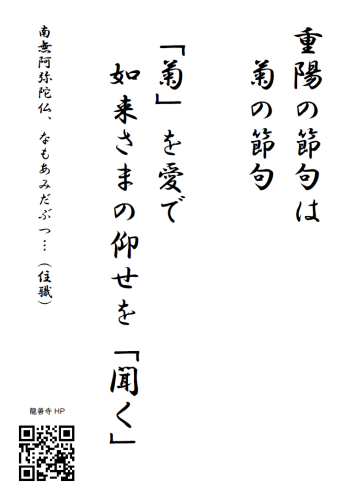 重陽の節句は
菊の節句
「菊」を愛で
如来さまの仰せを「聞く」
南無阿弥陀仏、なもあみだぶつ…（住職）
龍善寺 HP